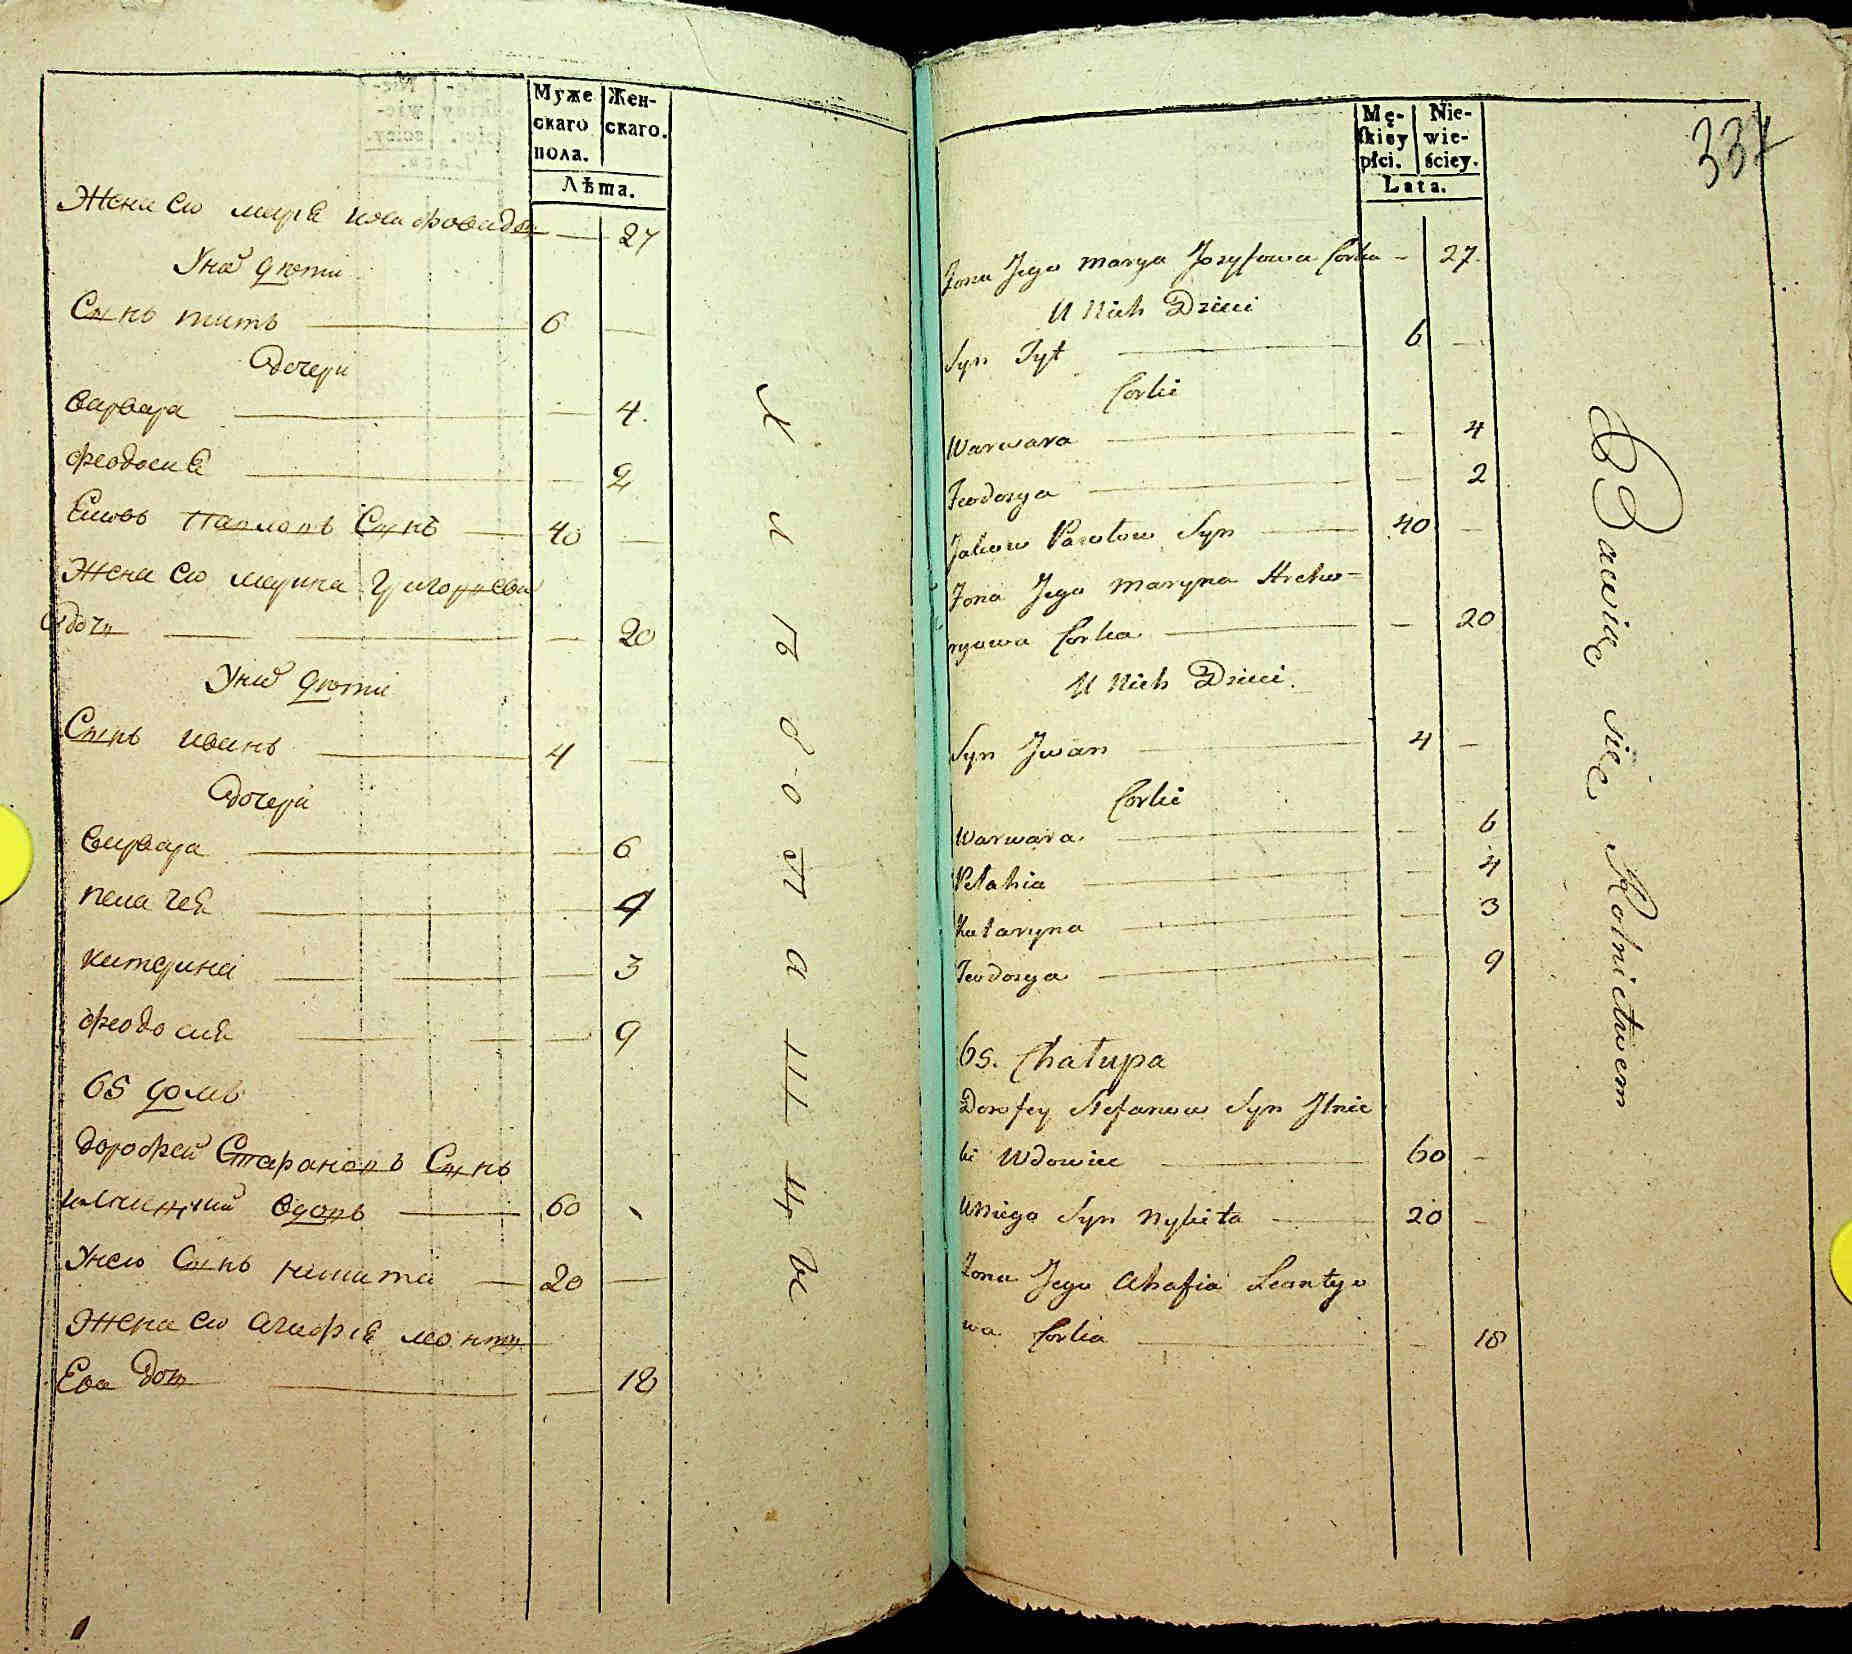 Муже
скаго
пола.
Жен-
скаго.
Лѣта.
Жена его марія иосифова дочь — 27
У нихъ дѣти
Сынъ титъ 6 —
дочери
варвара — 4.
феодосия — 2
Яковъ Павловъ Сынъ — 40 —
Жена его марина Григориева
дочь — 20
У нихъ дѣти
Сынъ иванъ 4 —
дочери
варвара — 6
пелагея — 4
катерина — 3
феодосия — 9
65 домъ
дорофей Стефановъ Сынъ
вдовъ — 60
У него Сынъ никита — 20 —
Жена его агафия леонти
Ева дочь — 18
Хлебопашцы
337
Mę-
skiey
płci.
Nie-
wie-
ściey.
Lata.
Zona Jego Marya Jozyfowa Corka — 27.
U Nich Dzieci
Syn Tyt 6 —
Corki
Warwara — 4
Teodozya — 2
Jakow Pawłow Syn — 40 —
Zona Jego Maryna Hreho-
ryowa Corka — 20
U Nich Dzieci.
Syn Jwan 4 —
Corki
Warwara — 6
Pełahia — 4
Katarzyna — 3
Teodozya — 9
65. Chałupa
Dorofey Stefanow Syn Jlnic
ki Wdowiec — 60 —
U niego Syn Nykita — 20 —
Zona Jego Ahafia Leontyo
wa Corka — 18
Bawiąc się Rolnictwem